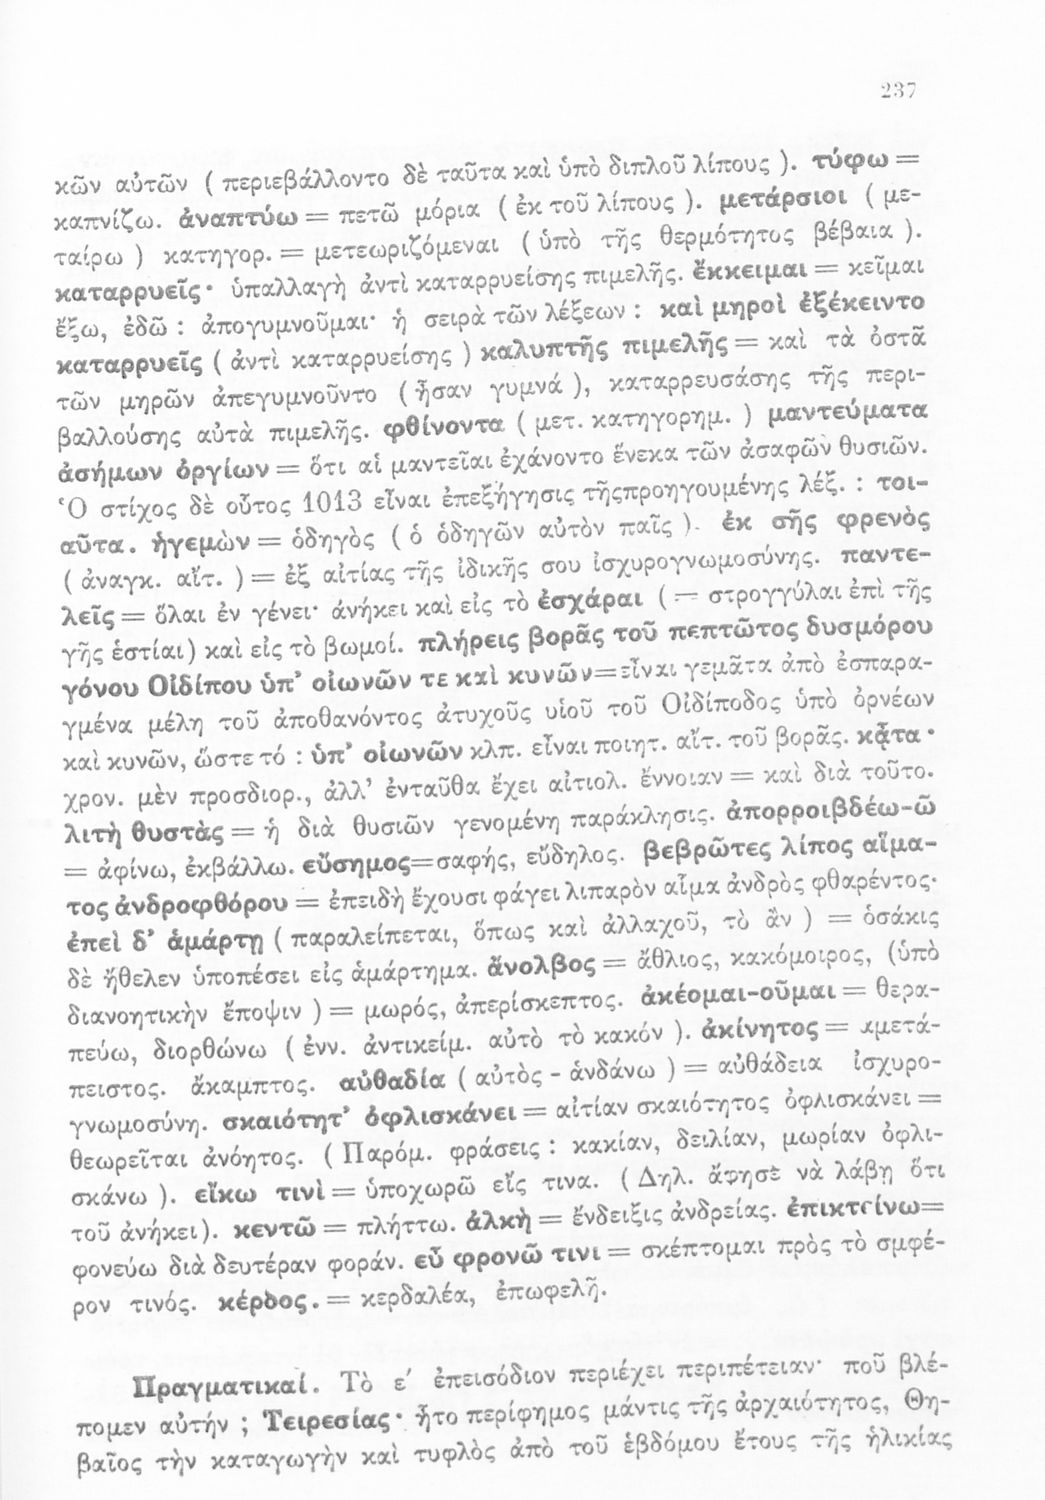 237
κῶν αὐτῶν ( περιεβάλλοντο δὲ ταῦτα καὶ ὑπὸ διπλοῦ λίπους ). τύφω =
καπνίζω. ἀναπτύω = πετῶ μόρια ( ἐκ τοῦ λίπους ). μετάρσιοι ( με-
ταίρω ) κατηγορ. = μετεωριζόμεναι ( ὑπὸ τῆς θερμότητος βέβαια ).
καταρρυεῖς· ὑπαλλαγὴ ἀντὶ καταρρυείσης πιμελῆς. ἔκκειμαι = κεῖμαι
ἔξω, ἐδῶ : ἀπογυμνοῦμαι· ἡ σειρὰ τῶν λέξεων : καὶ μηροὶ ἐξέκειντο
καταρρυεῖς ( ἀντὶ καταρρυείσης ) καλυπτῆς πιμελῆς = καὶ τὰ ὀστᾶ
τῶν μηρῶν ἀπεγυμνοῦντο ( ἦσαν γυμνά ), καταρρευσάσης τῆς περι-
βαλλούσης αὐτὰ πιμελῆς. φθίνοντα ( μετ. κατηγορημ. ) μαντεύματα
ἀσήμων ὀργίων = ὅτι αἱ μαντεῖαι ἐχάνοντο ἕνεκα τῶν ἀσαφῶν θυσιῶν.
Ὁ στίχος δὲ οὗτος 1013 εἶναι ἐπεξήγησις τῆςπροηγουμένης λέξ. : τοι-
αῦτα. ἡγεμὼν = ὁδηγὸς ( ὁ ὁδηγῶν αὐτὸν παῖς ). ἐκ σῆς φρενὸς
( ἀναγκ. αἴτ. ) = ἐξ αἰτίας τῆς ἰδικῆς σου ἰσχυρογνωμοσύνης. παντε-
λεῖς = ὅλαι ἐν γένει· ἀνήκει καὶ εἰς τὸ ἐσχάραι ( = στρογγύλαι ἐπὶ τῆς
γῆς ἑστίαι) καὶ εἰς τὸ βωμοί. πλήρεις βορᾶς τοῦ πεπτῶτος δυσμόρου
γόνου Οἰδίπου ὑπ' οἰωνῶν τε καὶ κυνῶν=εἶναι γεμᾶτα ἀπὸ ἐσπαρα-
γμένα μέλη τοῦ ἀποθανόντος ἀτυχοῦς υἱοῦ τοῦ Οἰδίποδος ὑπὸ ὀρνέων
καὶ κυνῶν, ὥστε τό : ὑπ' οἰωνῶν κλπ. εἶναι ποιητ. αἴτ. τοῦ βορᾶς. κᾆτα·
χρον. μὲν προσδιορ., ἀλλ' ἐνταῦθα ἔχει αἰτιολ. ἔννοιαν = καὶ διὰ τοῦτο.
λιτὴ θυστὰς = ἡ διὰ θυσιῶν γενομένη παράκλησις. ἀπορροιβδέω-ῶ
= ἀφίνω, ἐκβάλλω. εὔσημος=σαφής, εὔδηλος. βεβρῶτες λίπος αἵμα-
τος ἀνδροφθόρου = ἐπειδὴ ἔχουσι φάγει λιπαρὸν αἷμα ἀνδρὸς φθαρέντος·
ἐπεὶ δ' ἁμάρτῃ ( παραλείπεται, ὅπως καὶ ἀλλαχοῦ, τὸ ἂν ) = ὁσάκις
δὲ ἤθελεν ὑποπέσει εἰς ἁμάρτημα. ἄνολβος = ἄθλιος, κακόμοιρος, (ὑπὸ
διανοητικὴν ἔποψιν ) = μωρός, ἀπερίσκεπτος. ἀκέομαι-οῦμαι = θερα-
πεύω, διορθώνω ( ἐνν. ἀντικείμ. αὐτὸ τὸ κακόν ). ἀκίνητος = ἀμετά-
πειστος. ἄκαμπτος. αὐθαδία ( αὐτὸς - ἁνδάνω ) = αὐθάδεια ἰσχυρο-
γνωμοσύνη. σκαιότητ' ὀφλισκάνει = αἰτίαν σκαιότητος ὀφλισκάνει =
θεωρεῖται ἀνόητος. ( Παρόμ. φράσεις : κακίαν, δειλίαν, μωρίαν ὀφλι-
σκάνω ). εἴκω τινὶ = ὑποχωρῶ εἴς τινα. ( Δηλ. ἄφησε νὰ λάβῃ ὅτι
τοῦ ἀνήκει). κεντῶ = πλήττω. ἀλκὴ = ἔνδειξις ἀνδρείας. ἐπικτείνω=
φονεύω διὰ δευτέραν φοράν. εὖ φρονῶ τινι = σκέπτομαι πρὸς τὸ σμφέ-
ρον τινός. κέρδος. = κερδαλέα, ἐπωφελῆ.
Πραγματικαί. Τὸ ε' ἐπεισόδιον περιέχει περιπέτειαν· ποῦ βλέ-
πομεν αὐτήν ; Τειρεσίας· ἦτο περίφημος μάντις τῆς ἀρχαιότητος, Θη-
βαῖος τὴν καταγωγὴν καὶ τυφλὸς ἀπὸ τοῦ ἑβδόμου ἔτους τῆς ἡλικίας